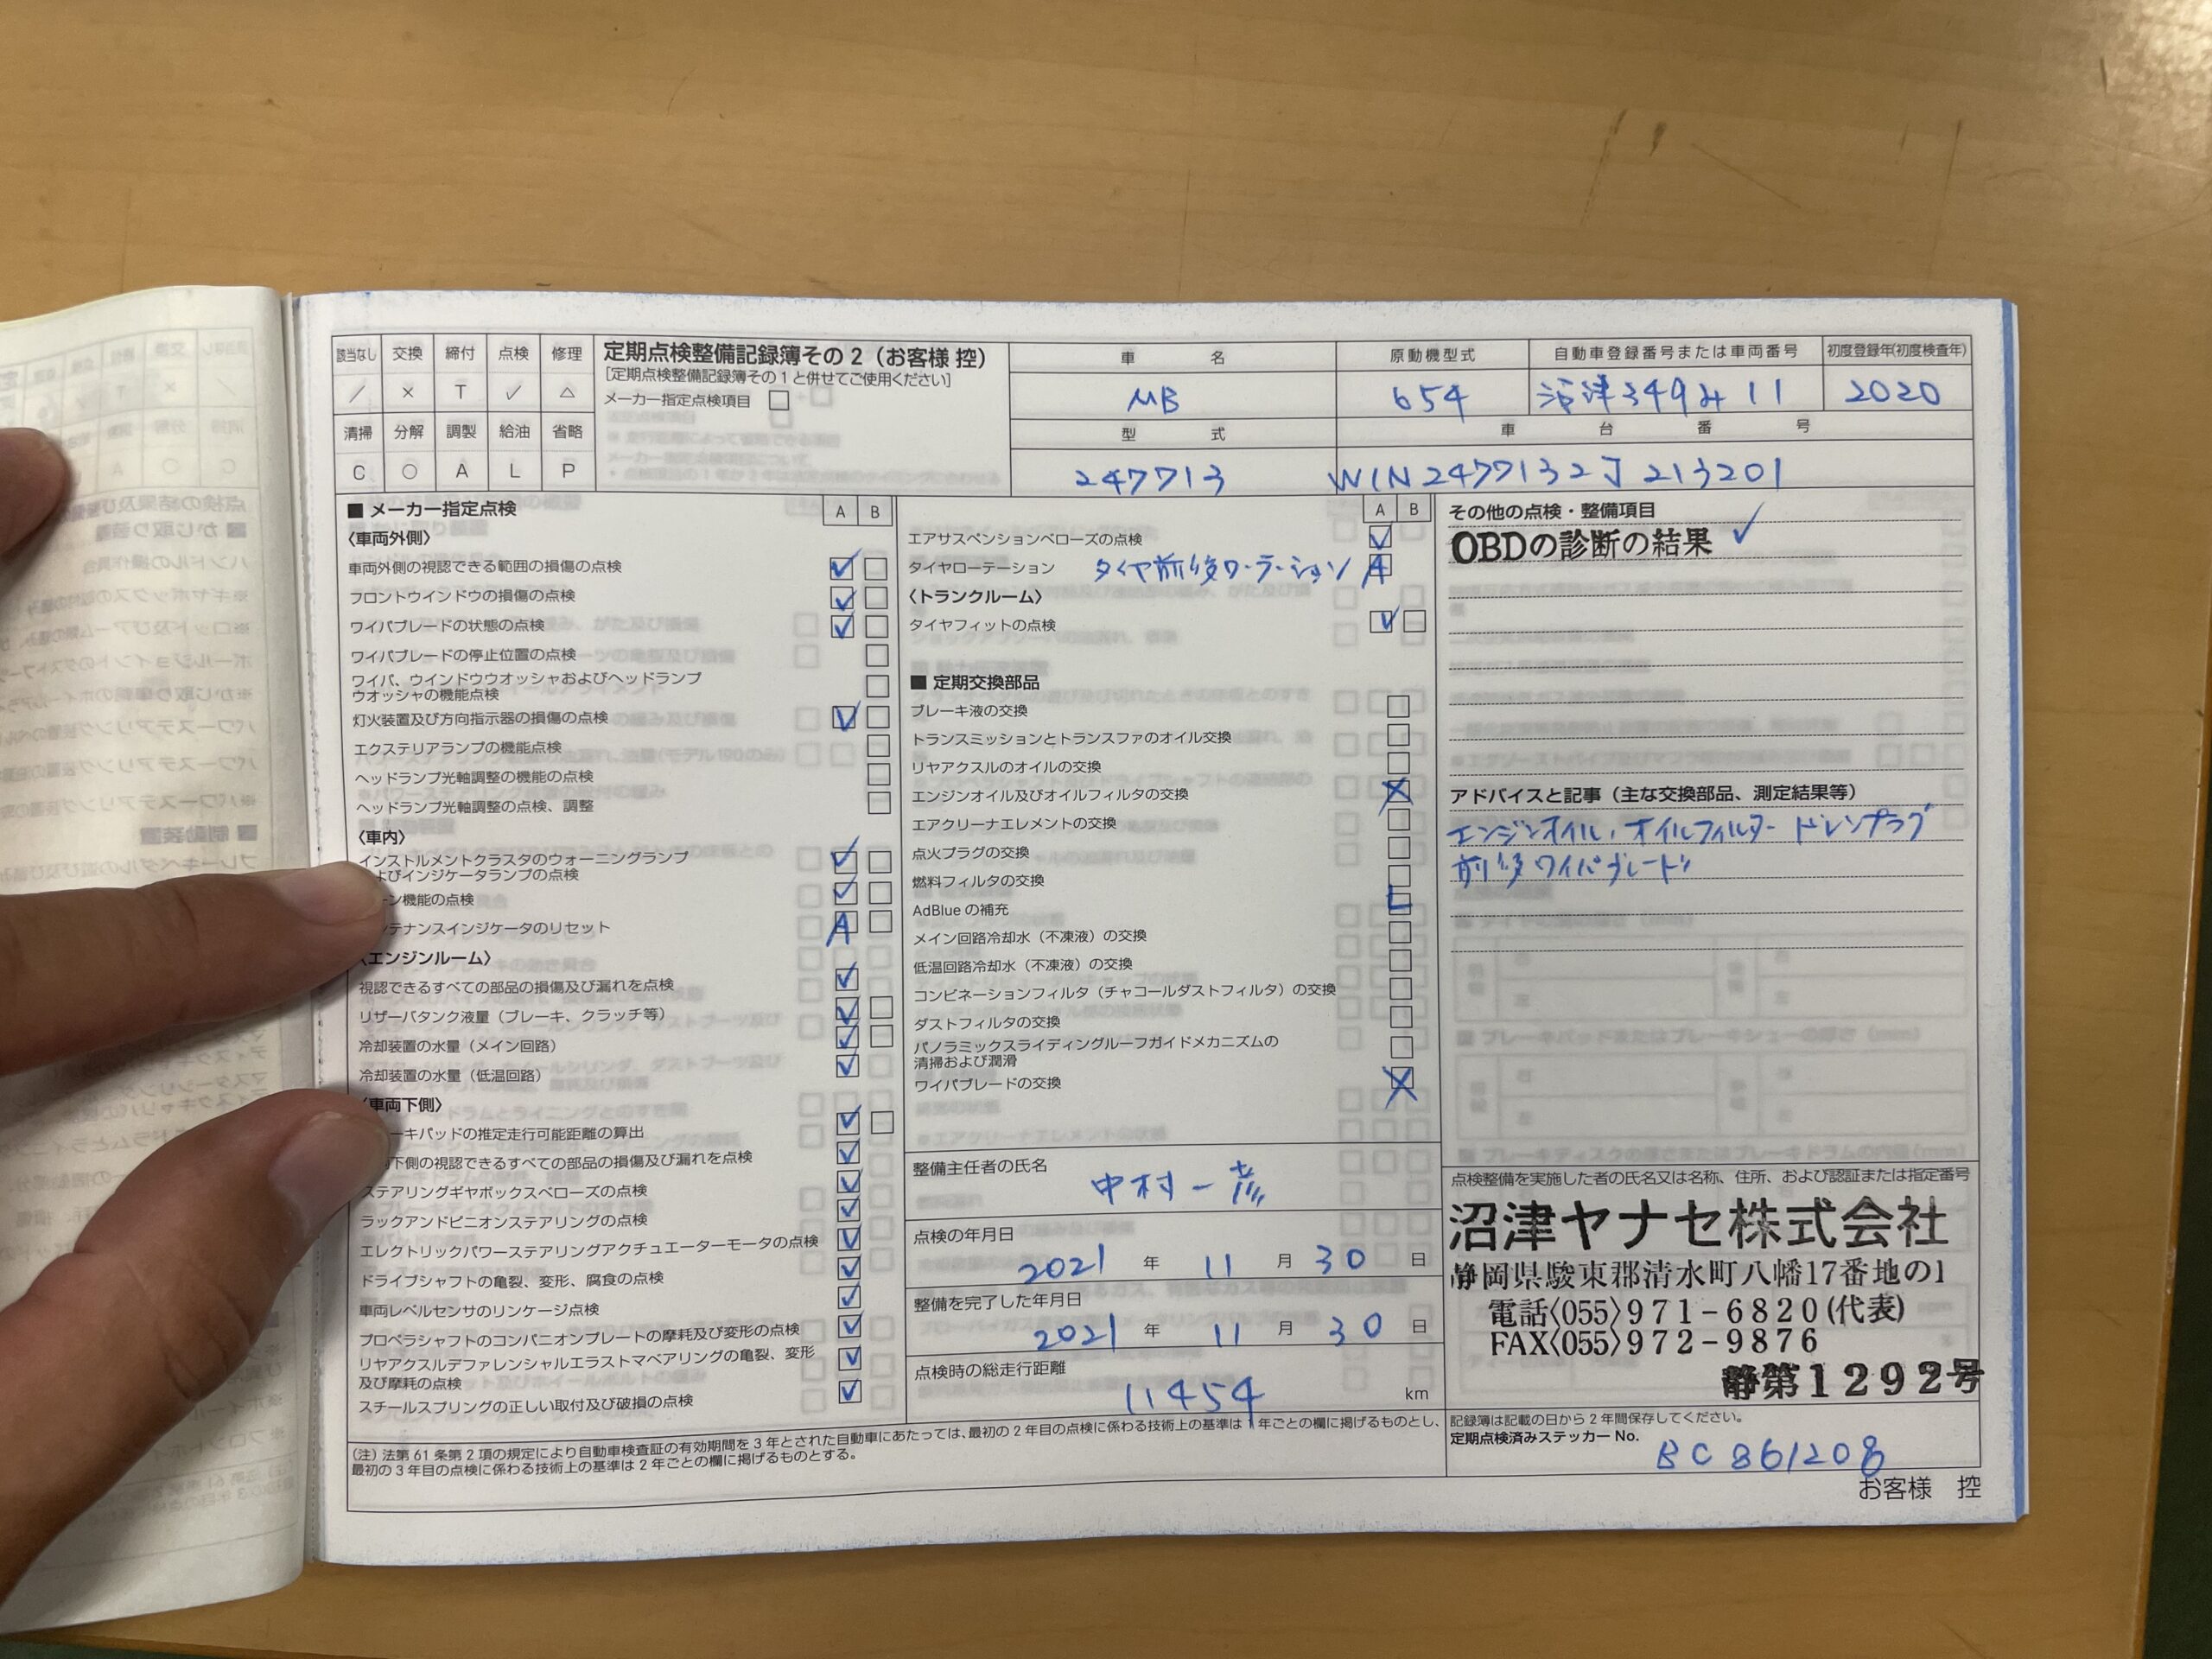 該当なし 交換 締付 点検 修理
／ × T ✓ △
清掃 分解 調製 給油 省略
C ○ A L P
定期点検整備記録簿その2（お客様 控）
[定期点検整備記録簿その1と併せてご使用ください]
メーカー指定点検項目 □
車 名 原動機型式 自動車登録番号または車両番号 初度登録年(初度検査年)
MB 654 沼津349み11 2020
型 式 車 台 番 号
247713 W1N2477132J213201
■ メーカー指定点検 A B
〈車両外側〉
車両外側の視認できる範囲の損傷の点検 ✓
フロントウインドウの損傷の点検 ✓
ワイパブレードの状態の点検 ✓
ワイパブレードの停止位置の点検
ワイパ、ウインドウウオッシャおよびヘッドランプ
ウオッシャの機能点検
灯火装置及び方向指示器の損傷の点検 ✓
エクステリアランプの機能点検
ヘッドランプ光軸調整の機能の点検
ヘッドランプ光軸調整の点検、調整
〈車内〉
インストルメントクラスタのウォーニングランプ ✓
よびインジケータランプの点検
ーン機能の点検 ✓
テナンスインジケータのリセット A
〈エンジンルーム〉
視認できるすべての部品の損傷及び漏れを点検 ✓
リザーバタンク液量（ブレーキ、クラッチ等） ✓
冷却装置の水量（メイン回路） ✓
冷却装置の水量（低温回路） ✓
〈車両下側〉
ーキパッドの推定走行可能距離の算出 ✓
下側の視認できるすべての部品の損傷及び漏れを点検 ✓
ステアリングギヤボックスベローズの点検 ✓
ラックアンドピニオンステアリングの点検 ✓
エレクトリックパワーステアリングアクチュエーターモータの点検 ✓
ドライブシャフトの亀裂、変形、腐食の点検 ✓
車両レベルセンサのリンケージ点検 ✓
プロペラシャフトのコンパニオンプレートの摩耗及び変形の点検 ✓
リヤアクスルデファレンシャルエラストマベアリングの亀裂、変形 ✓
及び摩耗の点検
スチールスプリングの正しい取付及び破損の点検 ✓
A B
エアサスペンションベローズの点検 ✓
タイヤローテーション タイヤ前後ローテーション A
〈トランクルーム〉
タイヤフィットの点検 ✓
■ 定期交換部品
ブレーキ液の交換
トランスミッションとトランスファのオイル交換
リヤアクスルのオイルの交換
エンジンオイル及びオイルフィルタの交換 ×
エアクリーナエレメントの交換
点火プラグの交換
燃料フィルタの交換
AdBlueの補充 L
メイン回路冷却水（不凍液）の交換
低温回路冷却水（不凍液）の交換
コンビネーションフィルタ（チャコールダストフィルタ）の交換
ダストフィルタの交換
パノラミックスライディングルーフガイドメカニズムの
清掃および潤滑
ワイパブレードの交換 ×
整備主任者の氏名
中村一彦
点検の年月日
2021 年 11 月 30 日
整備を完了した年月日
2021 年 11 月 30 日
点検時の総走行距離
11454 km
その他の点検・整備項目
OBDの診断の結果 ✓
アドバイスと記事（主な交換部品、測定結果等）
エンジンオイル、オイルフィルター ドレンプラグ
前後ワイパブレード
点検整備を実施した者の氏名又は名称、住所、および認証または指定番号
沼津ヤナセ株式会社
静岡県駿東郡清水町八幡17番地の1
電話〈055〉971-6820(代表)
FAX〈055〉972-9876
静第1292号
（注）法第61条第2項の規定により自動車検査証の有効期間を3年とされた自動車にあたっては、最初の2年目の点検に係わる技術上の基準は1年ごとの欄に掲げるものとし、
最初の3年目の点検に係わる技術上の基準は2年ごとの欄に掲げるものとする。
記録簿は記載の日から2年間保存してください。
定期点検済みステッカー No.
BC861208
お客様 控